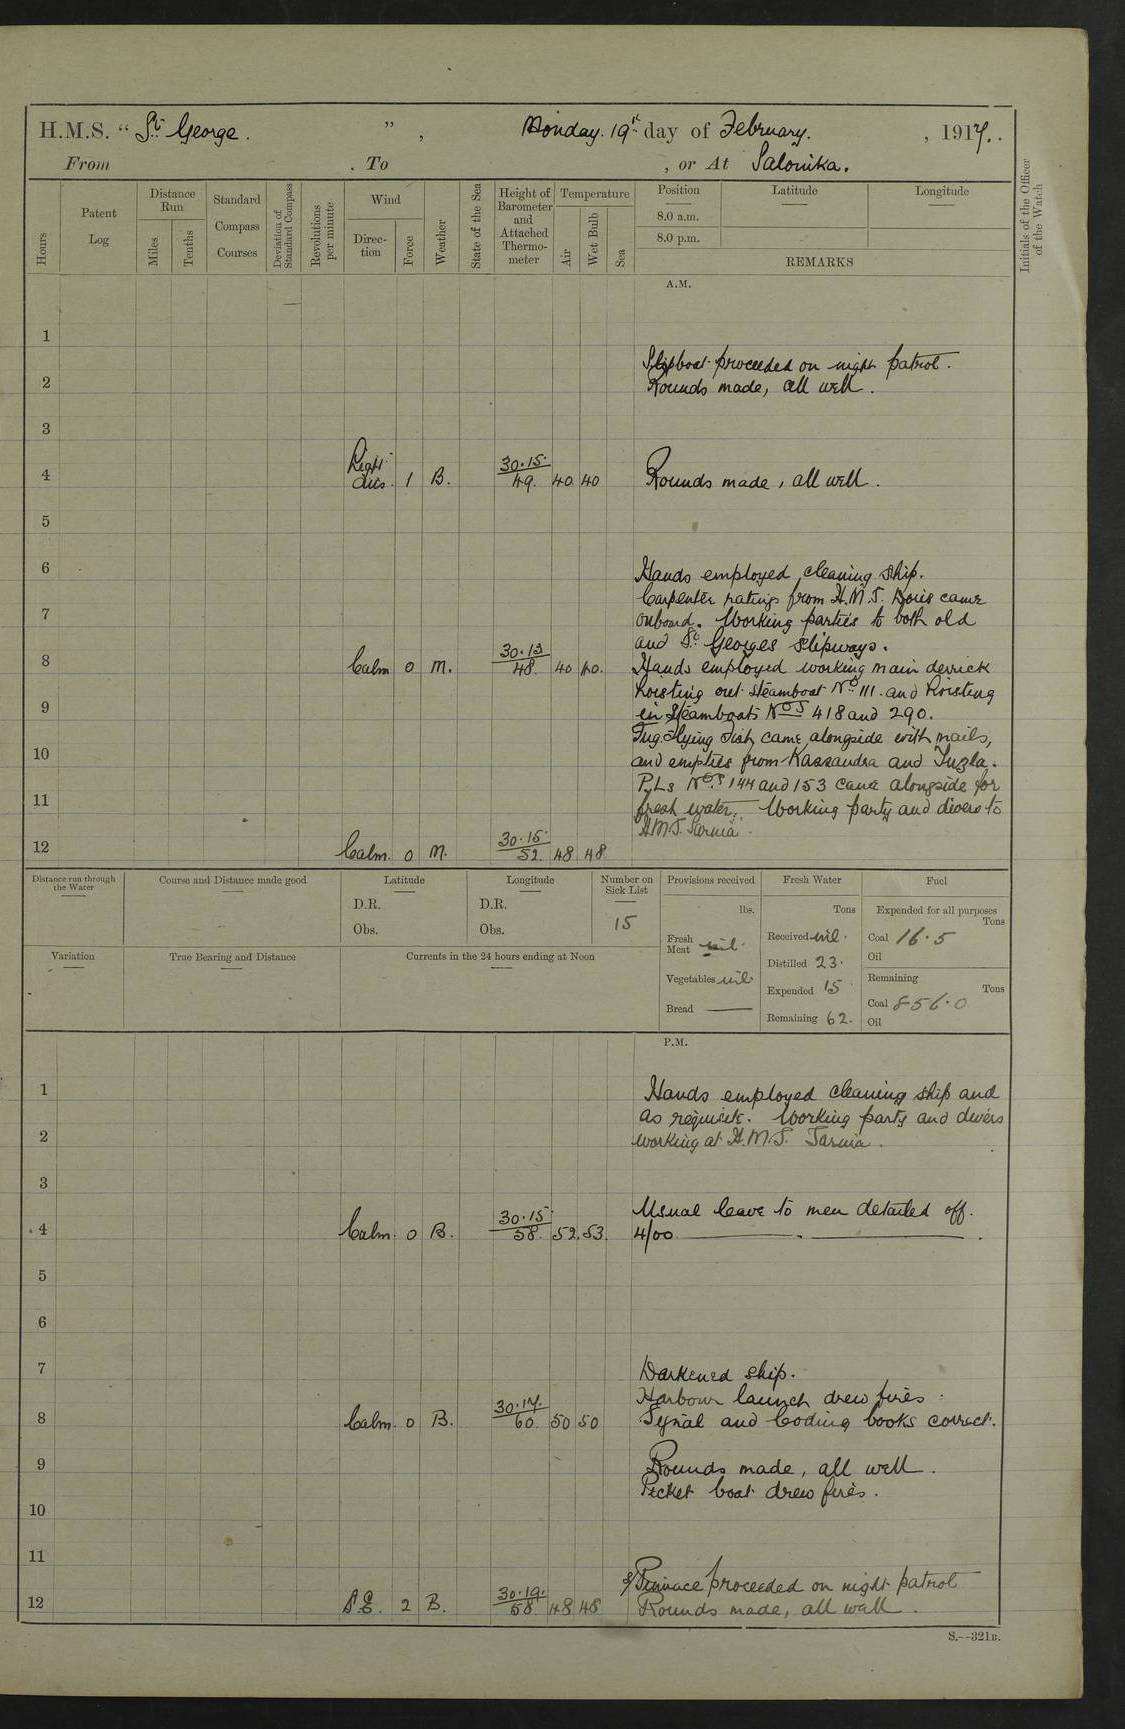 H.M.S. "St George. ", Monday. 19th day of February. , 1917.
From . To , or At Salonika.
Hours
Patent Log
Distance Run
Miles
Tenths
Standard Compass Courses
Deviation of Standard Compass
Revolutions per minute
Wind
Direction
Force
Weather
State of the Sea
Height of Barometer and Attached Thermometer
Temperature
Air
Wet Bulb
Sea
Position
8.0 a.m.
8.0 p.m.
Latitude
Longitude
REMARKS
Initials of the Officer of the Watch
A.M.
1
Slipboat proceeded on night patrol.
2 Rounds made, all well.
3
4 Light airs. 1 B. 30.15 49. 40 40 Rounds made, all well.
5
6 Hands employed cleaning ship.
Carpenter ratings from H.M.S. Doris came
7 onboard. Working parties to both old
and St Georges slipways.
8 Calm 0 M. 30.13 48. 40 40. Hands employed working main derrick
hoisting out steamboat No. 111. and hoisting
9 in Steamboats Nos 418 and 290.
Tug Flying Fish came alongside with mails,
10 and empties from Kassandra and Tuzla.
P.Ls Nos. 144 and 153 came alongside for
11 fresh water. Working party and divers to
H.M.S. Sarnia.
12 Calm. 0 M. 30.15. 52. 48 48
Distance run through the Water
Course and Distance made good
Latitude
D.R.
Obs.
Longitude
D.R.
Obs.
Number on Sick List
15
Provisions received
lbs.
Fresh Meat nil.
Vegetables nil
Bread
Fresh Water
Tons
Received nil.
Distilled 23.
Expended 15
Remaining 62.
Fuel
Expended for all purposes
Tons
Coal 16.5
Oil
Remaining
Tons
Coal 856.0
Oil
Variation
True Bearing and Distance
Currents in the 24 hours ending at Noon
P.M.
1 Hands employed cleaning ship and
as requisite. Working party and divers
2 working at H.M.S. Sarnia.
3
Usual leave to men detailed off.
4 Calm. 0 B. 30.15 58. 52. 53. 4/00
5
6
7 Darkened ship.
Harbour launch drew fires.
8 Calm. 0 B. 30.17. 60. 50 50 Signal and Coding books correct.
9 Rounds made, all well.
Picket boat drew fires.
10
11
S/Pinnace proceeded on night patrol
12 S.E. 2 B. 30.19. 58. 48 48 Rounds made, all well.
S.--321B.